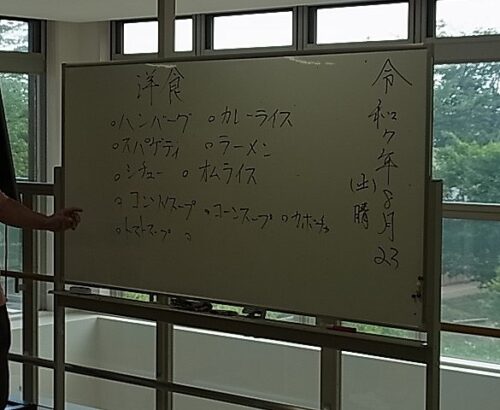 令和7年8月23
(土)晴
洋食
○ハンバーグ ○カレーライス
○スパゲティ ○ラーメン
○シチュー ○オムライス
○コンソメスープ ○コーンスープ ○カボチャ
○トマトスープ ○